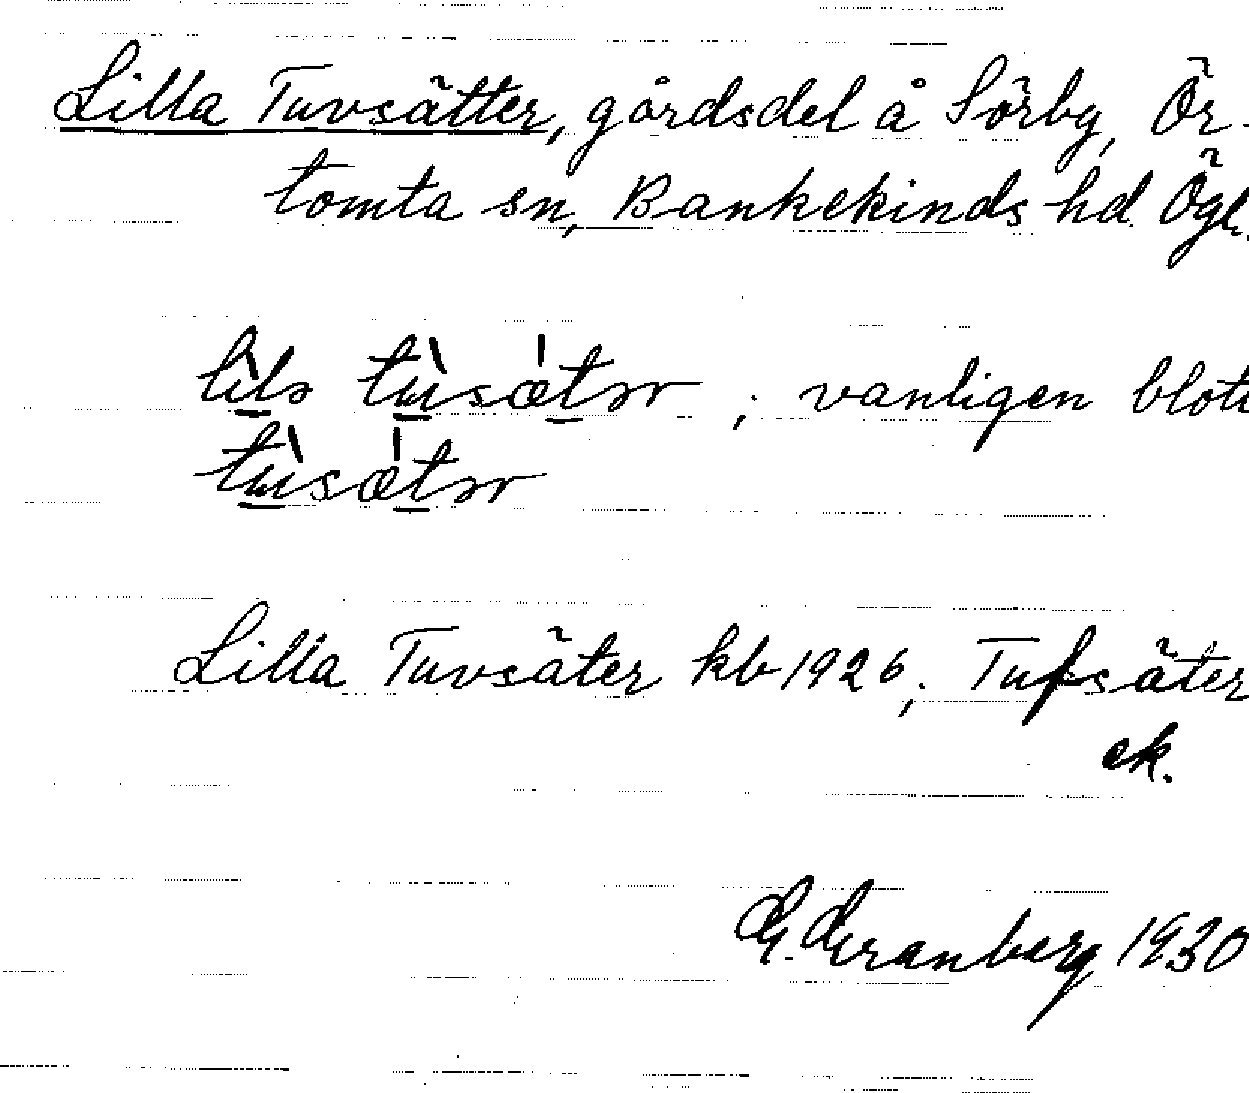 Lilla Tuvsätter, gårdsdel å Sörby, Ör-
tomta sn, Bankekinds hd. Ögl.
; vanligen blott
Lilla Tuvsäter kb 1926; Tufsäter
ek.
G. Granberg 1930